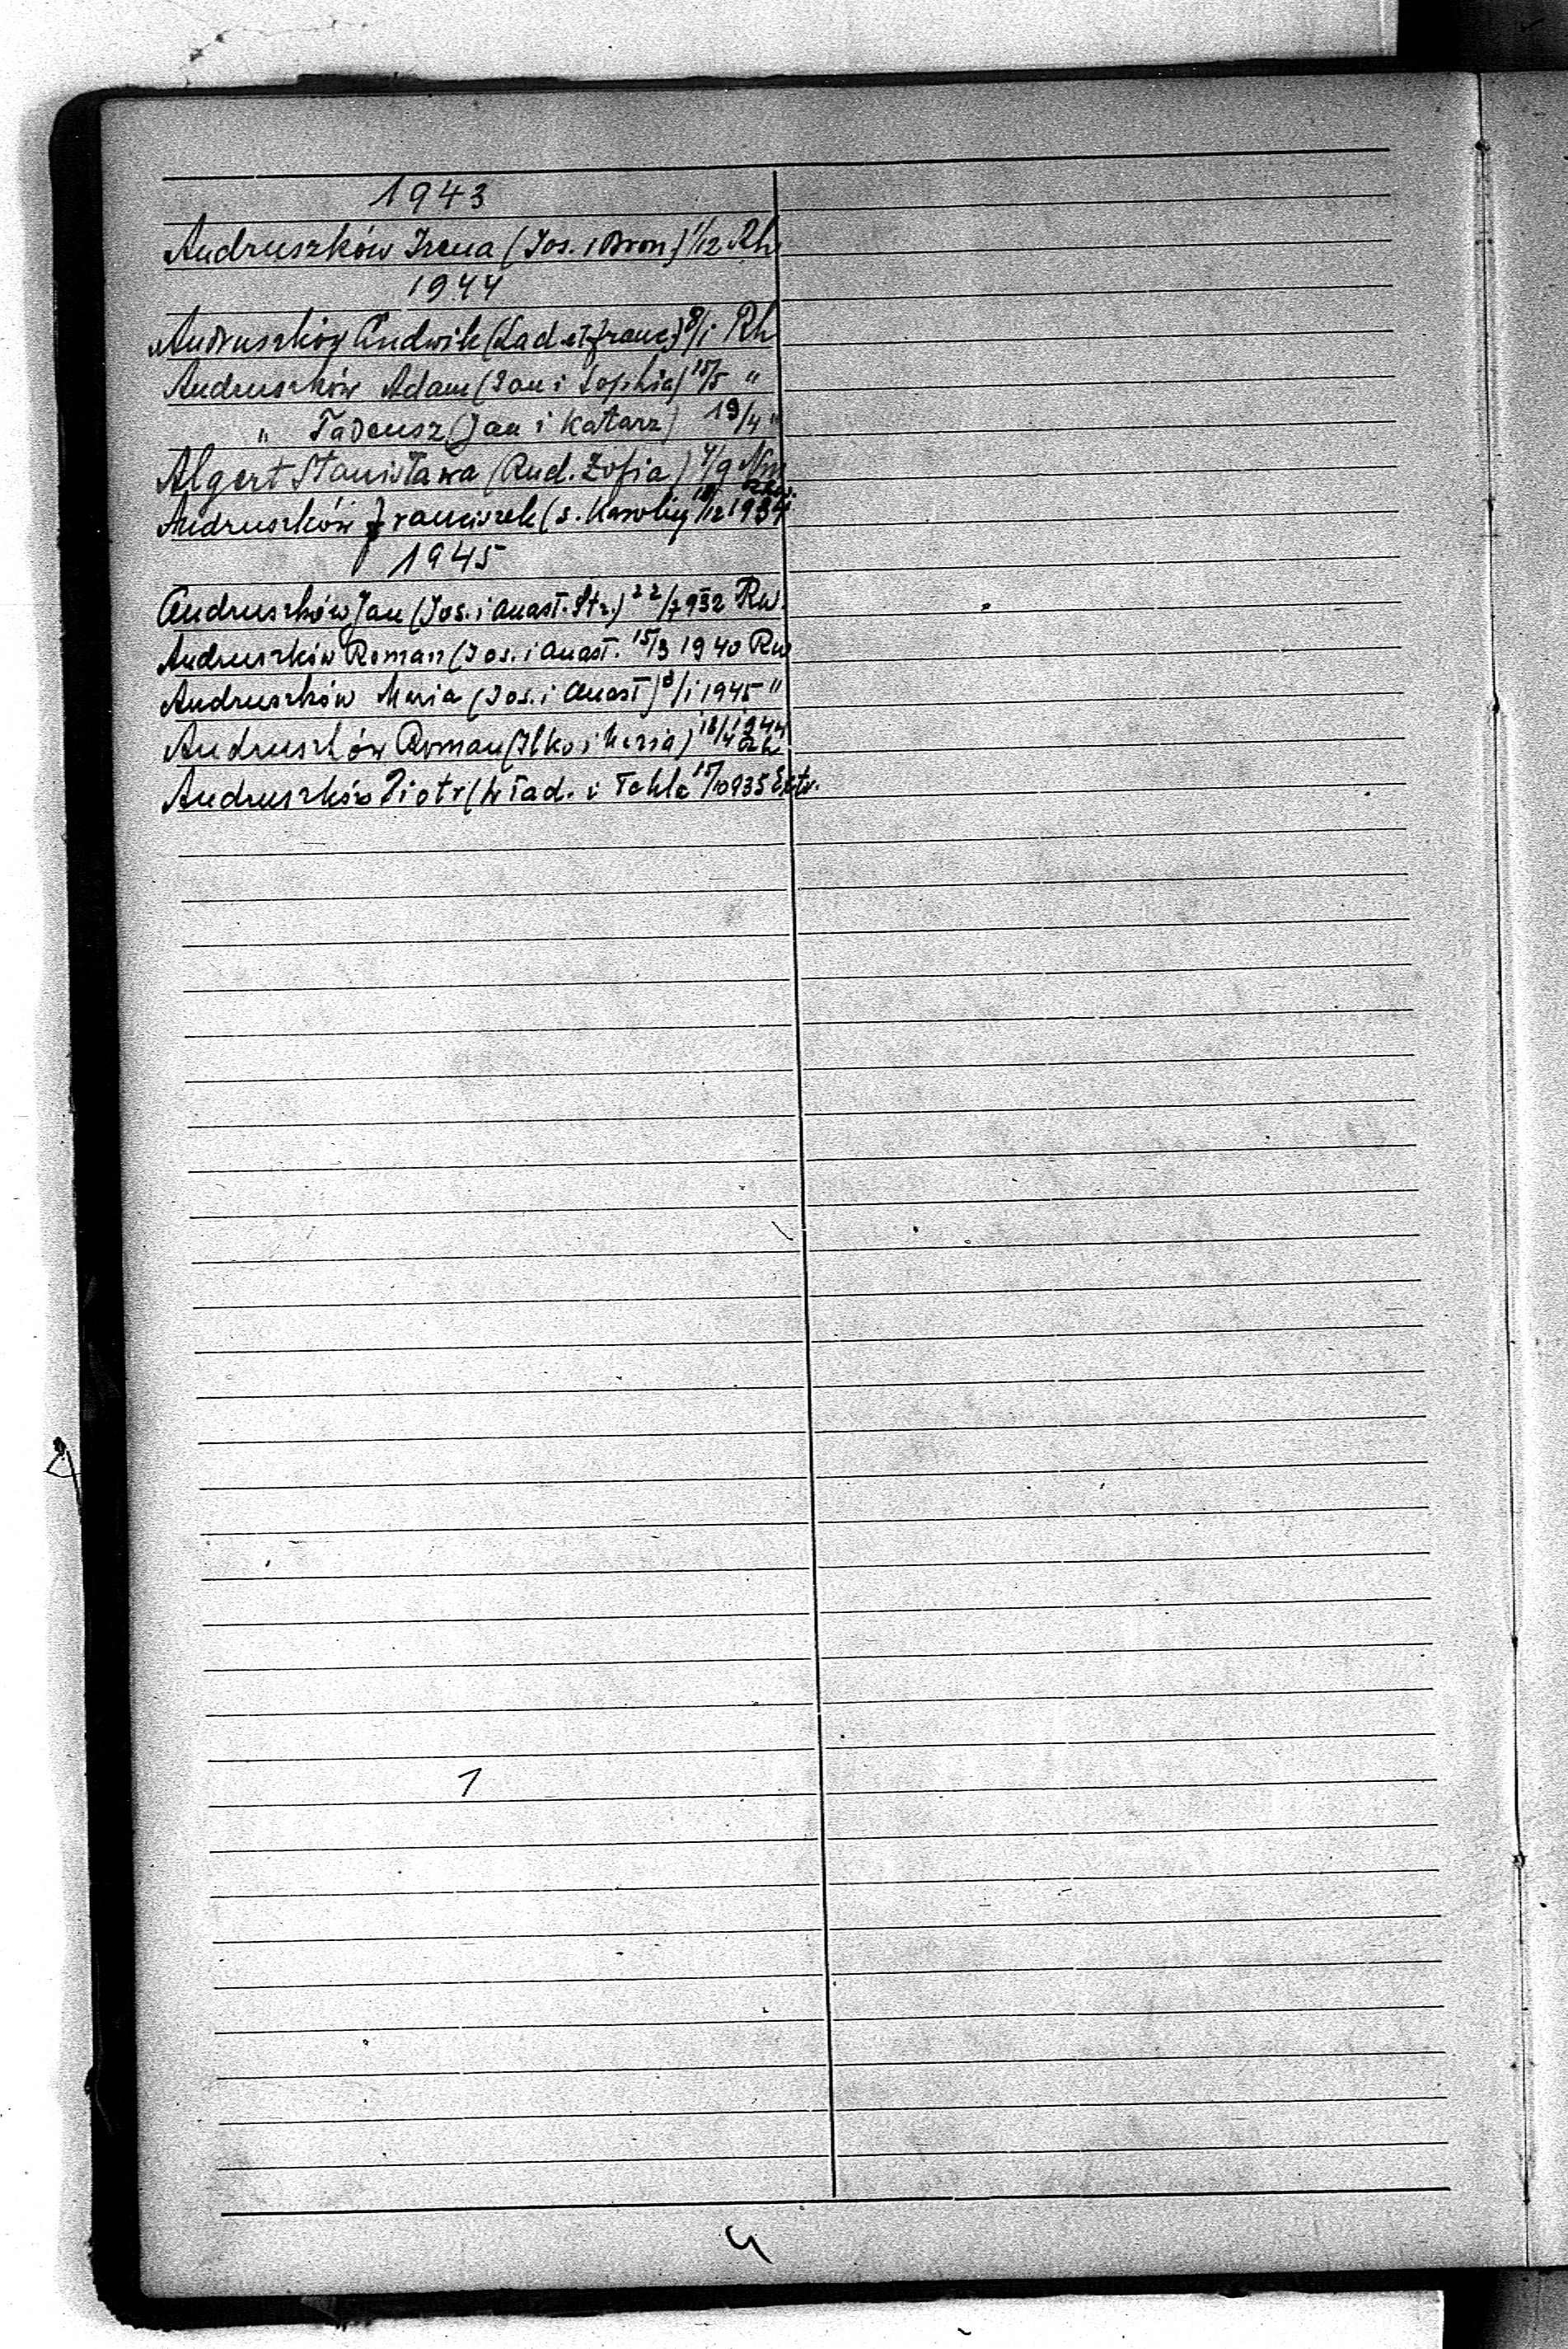 1943
Andruszków Irena (Jos. i Bron.) 1/12 Rh
1944
Andruszków Ludwik (Lad. et Franc.) 8/i Rh
Andruszków Adam (Jan i Sophia) 15/5 "
" Tadeusz (Jan i Katarz) 19/4 "
Algert Stanisława (Rud. Zofia) 4/9
Andruszków Franciszek (s. Karoliny 18/12 1934
1945
Andruszków Jan (Jos. i Anast. Str.) 22/7 932 Rw.
Andruszków Roman (Jos. i Anast. 15/3 1940 Rw
Andruszków Maria (Jos. i Anast) 8/i 1945 "
Andruszków Roman (Ilko i Maria) 18/4 1944
Andruszków Piotr (Wład. i Tekla 15/10 935 Extr.
1
4